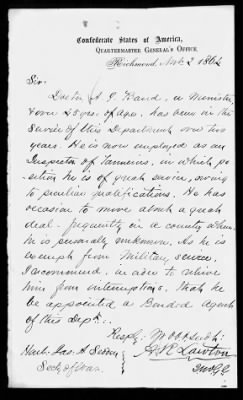 Confederate States of America,
QUARTERMASTER GENERAL'S OFFICE,
Richmond, Nov. 2 1864
Sir
Doctor A. G. a Minister,
over 45 yrs. of age, has been in the
service of this Department over two
years. He is now employed as an
Inspector of Tanneries, in which po-
sition he is of great service, owing
to peculiar qualifications. He has
occasion to move about a great
deal - frequently in a country where
he is personally unknown. As he is
exempt from Military service,
I recommend, in order to relieve
him from interruptions, that he
be appointed a Bonded Agent
of this Dept..
Resply. Yr obt servt:
Honl. Jas. A Seddon A.R. Lawton
Secty of War. QMGl